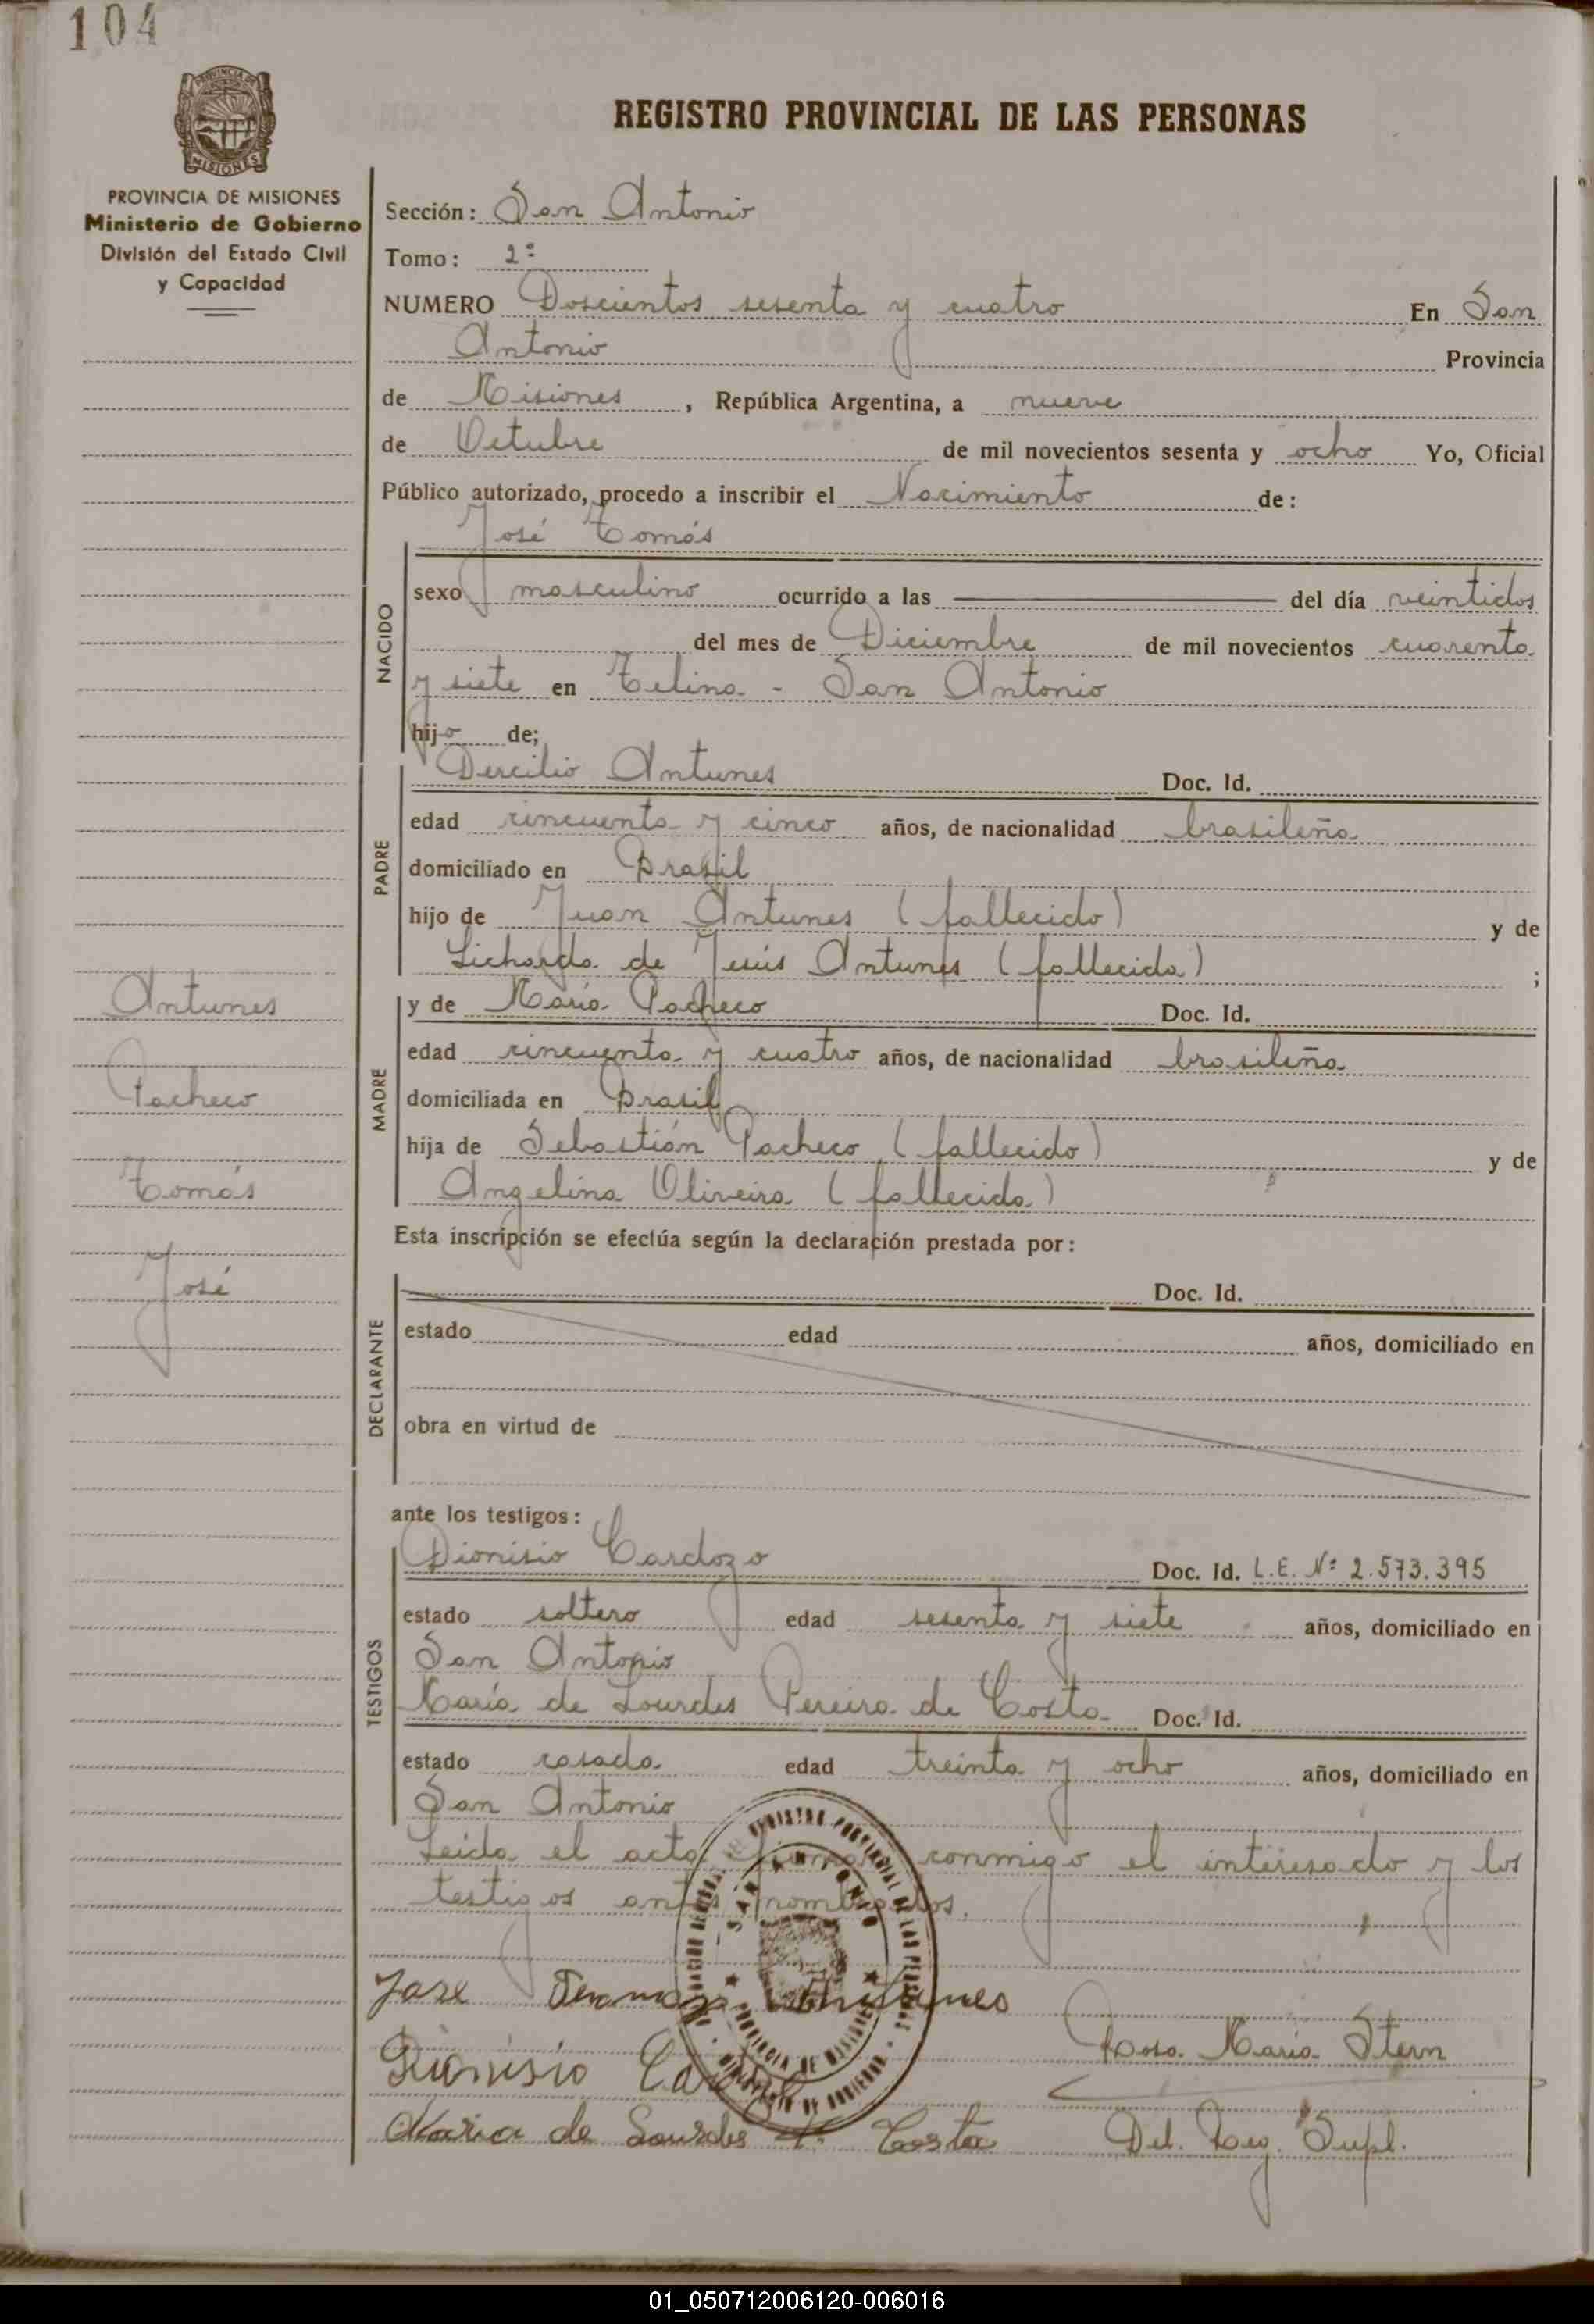 104
REGISTRO PROVINCIAL DE LAS PERSONAS
PROVINCIA DE MISIONES
Ministerio de Gobierno
División del Estado Civil
y Capacidad
Antunes
Pacheco
Tomás
José
Sección: San Antonio
Tomo: 2º
NUMERO Doscientos sesenta y cuatro En San
Antonio Provincia
de Misiones, República Argentina, a nueve
de Octubre de mil novecientos sesenta y ocho Yo, Oficial
Público autorizado, procedo a inscribir el Nacimiento de:
José Tomás
NACIDO
sexo masculino ocurrido a las del día veintidos
del mes de Diciembre de mil novecientos cuarenta
y siete en Telina - San Antonio
hijo de;
PADRE
Dercilio Antunes Doc. Id.
edad cincuenta y cinco años, de nacionalidad brasileña
domiciliado en Brasil
hijo de Juan Antunes (fallecido) y de
de Jesús Antunes (fallecida) ;
MADRE
y de María Pacheco Doc. Id.
edad cincuenta y cuatro años, de nacionalidad brasileña
domiciliada en Brasil
hija de Sebastián Pacheco (fallecido) y de
Angelina Oliveira (fallecida)
Esta inscripción se efectúa según la declaración prestada por:
DECLARANTE
Doc. Id.
estado edad años, domiciliado en
obra en virtud de
ante los testigos:
TESTIGOS
Dionisio Cardozo Doc. Id. L.E. Nº 2.573.395
estado soltero edad sesenta y siete años, domiciliado en
San Antonio
María de Lourdes Pereira de Costa Doc. Id.
estado casada edad treinta y ocho años, domiciliado en
San Antonio
Leida el acta firman conmigo el interesado y los
testigos antes nombrados.
Jose Antunes
Dionisio
Rosa María Stern
Maria de Lourdes P. Costa
Del. Reg. Supl.
01_050712006120-006016